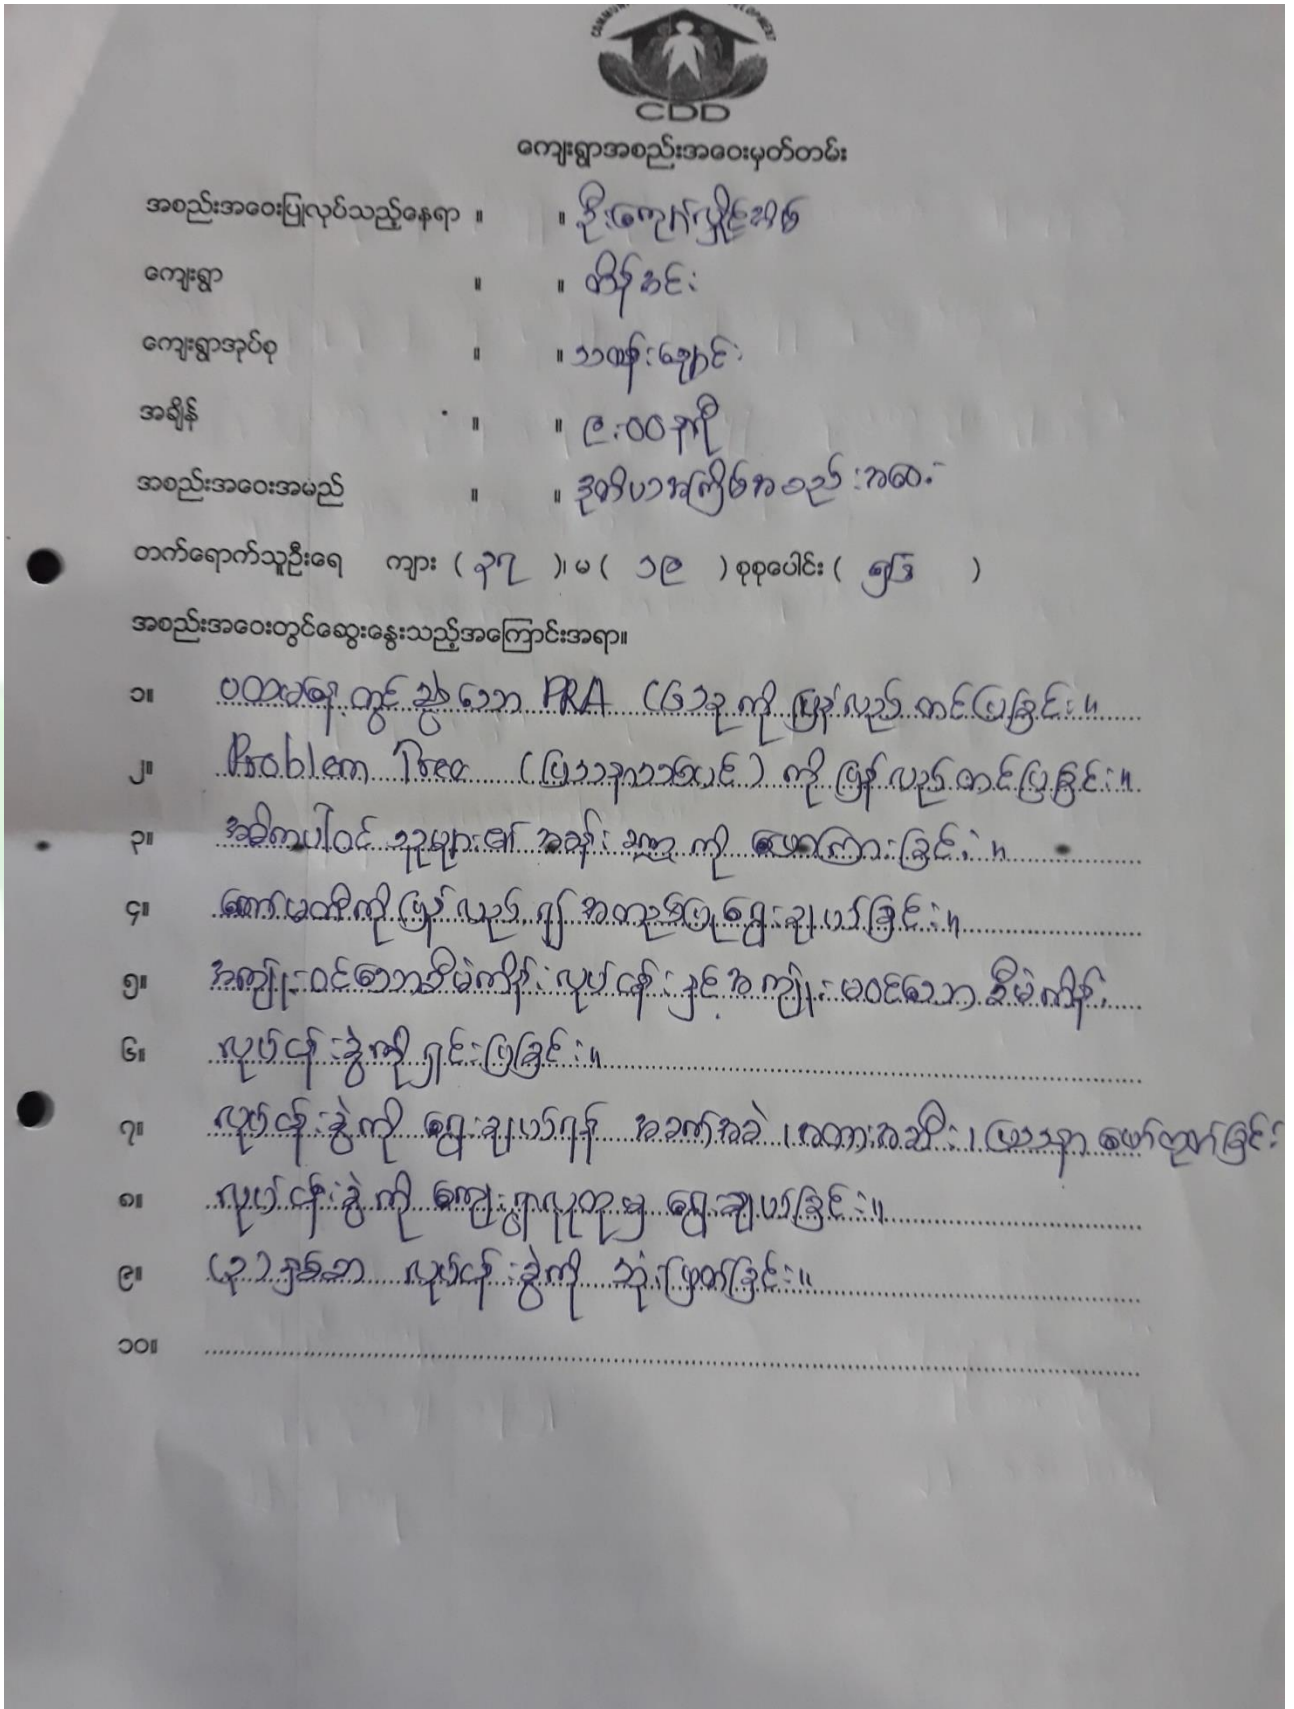 COMMUNI ELOPMENT
CDD
ကျေးရွာအစည်းအဝေးမှတ်တမ်း
အစည်းအဝေးပြုလုပ်သည့်နေရာ ။ ။ ဦးကျော်လှိုင်အိမ်
ကျေးရွာ ။ ။ တိန်ခင်း
ကျေးရွာအုပ်စု ။ ။ သဖန်းချောင်း
အချိန် ။ ။ ၉:၀၀ နာရီ
အစည်းအဝေးအမည် ။ ။ ဒုတိယအကြိမ်အစည်းအဝေး
တက်ရောက်သူဦးရေ ကျား ( ၃၇ )၊ မ ( ၁၉ ) စုစုပေါင်း ( ၅၆ )
အစည်းအဝေးတွင်ဆွေးနွေးသည့်အကြောင်းအရာ။
၁။ ပထမနေ့တွင် ဆွဲသော PRA (၆)ခုကို ပြန်လည်တင်ပြခြင်း။
၂။ Problem Tree (ပြဿနာသစ်ပင်) ကို ပြန်လည်တင်ပြခြင်း။
၃။ အဓိကပါဝင်သူများ၏ အခန်းကဏ္ဍကို ဖော်ကြားခြင်း။
၄။ ကော်မတီကို ပြန်လည်၍ အတည်ပြုရွေးချယ်ခြင်း။
၅။ အကျုံးဝင်သောစီမံကိန်းလုပ်ငန်းနှင့် အကျုံးမဝင်သော စီမံကိန်း
၆။ လုပ်ငန်းခွဲကို ရှင်းပြခြင်း။
၇။ လုပ်ငန်းခွဲကို ရွေးချယ်ရန် အခက်အခဲ ၊ အတားအဆီး ၊ ပြဿနာ ဖော်ထုတ်ခြင်း
၈။ လုပ်ငန်းခွဲကို ကျေးရွာလူထုမှ ရွေးချယ်ခြင်း။
၉။ (၃)နှစ်စာ လုပ်ငန်းခွဲကို ဆုံးဖြတ်ခြင်း။
၁၀။